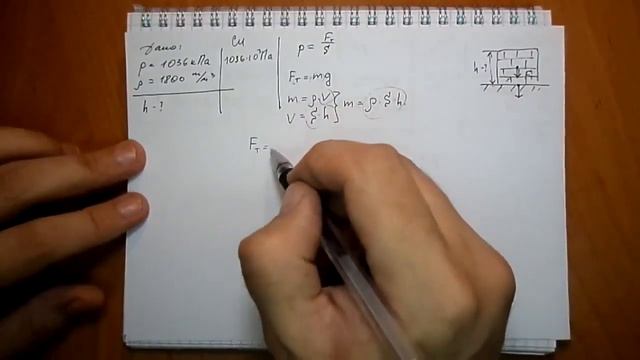 Дано:
p = 1036 кПа
ρ = 1800 м/м³
h - ?
СИ
1036·10³Па
p = Fт/S
Fт = mg
m = ρ·V
V = S·h
m = ρ·S·h
h-?
Fт =